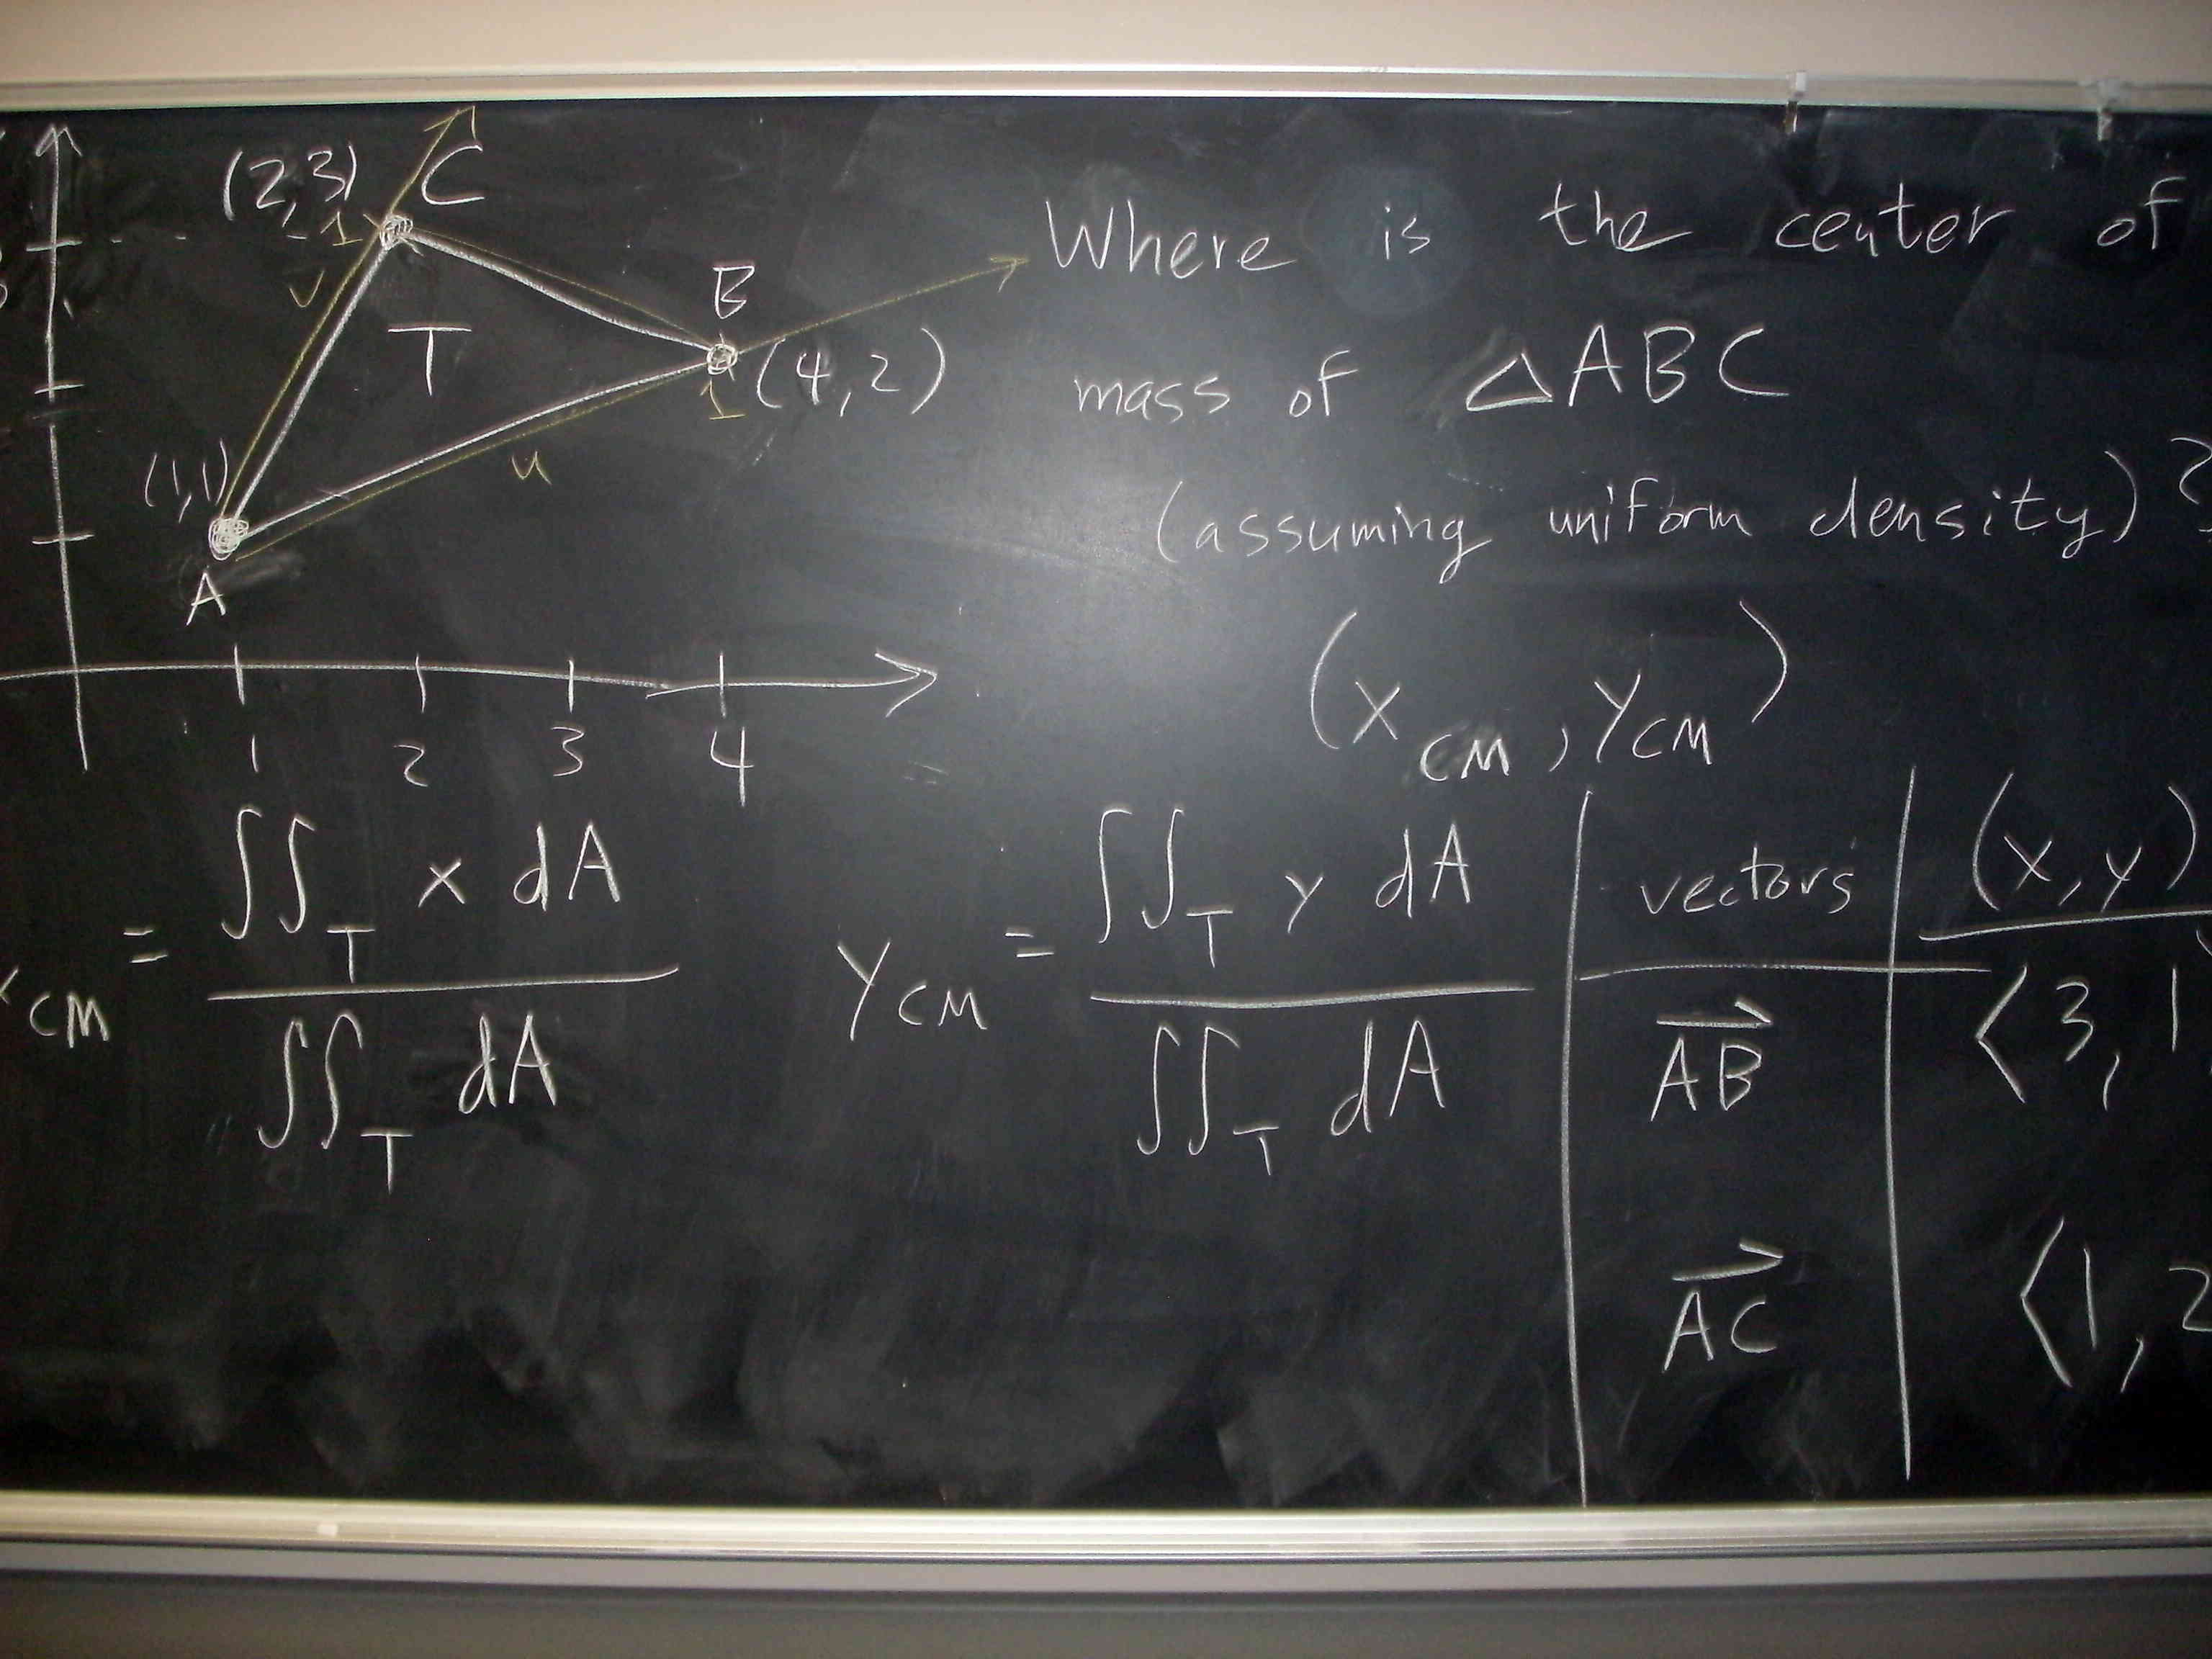 (2,3) C
1
v
B
T
1 (4,2)
u
(1,1)
A
1 2 3 4
Where is the center of
mass of △ABC
(assuming uniform density)?
(x_CM, y_CM)
x_CM = ∬_T x dA / ∬_T dA
y_CM = ∬_T y dA / ∬_T dA
vectors (x,y)
AB ⟨3, 1
AC ⟨1, 2